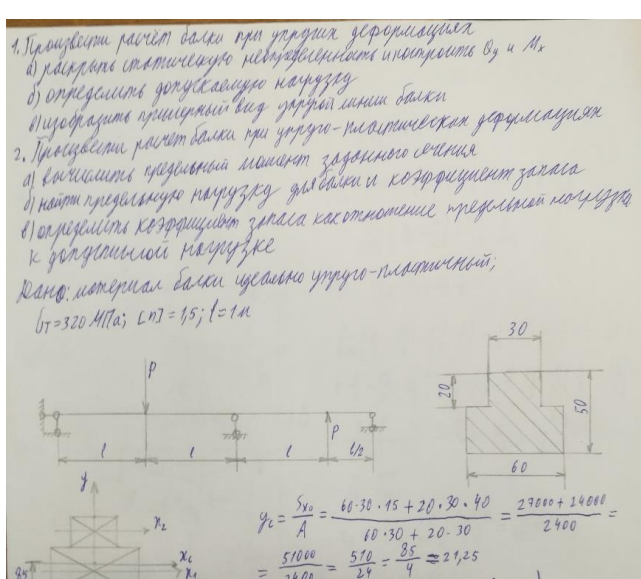 1. Произвести расчёт балки при упругих деформациях
а) раскрыть статическую неопределенность и построить Qy и Mx
б) определить допускаемую нагрузку
в) изобразить примерный вид упругой линии балки
2. Произвести расчет балки при упруго-пластических деформациях
а) вычислить предельный момент заданного сечения
б) найти предельную нагрузку для балки и коэффициент запаса
в) определить коэффициент запаса как отношение предельной нагрузки
к допустимой нагрузке
Дано: материал балки идеально упруго-пластичный;
σт=320 МПа; [n]=1,5; l=1м
30
P
20
50
P
l
l
l
l/2
60
y
x2
yc = Sx0/A = (60·30·15+20·30·40)/(60·30+20·30) = (27000+24000)/2400 =
xc
x1
= 51000/2400 = 510/24 = 85/4 = 21,25